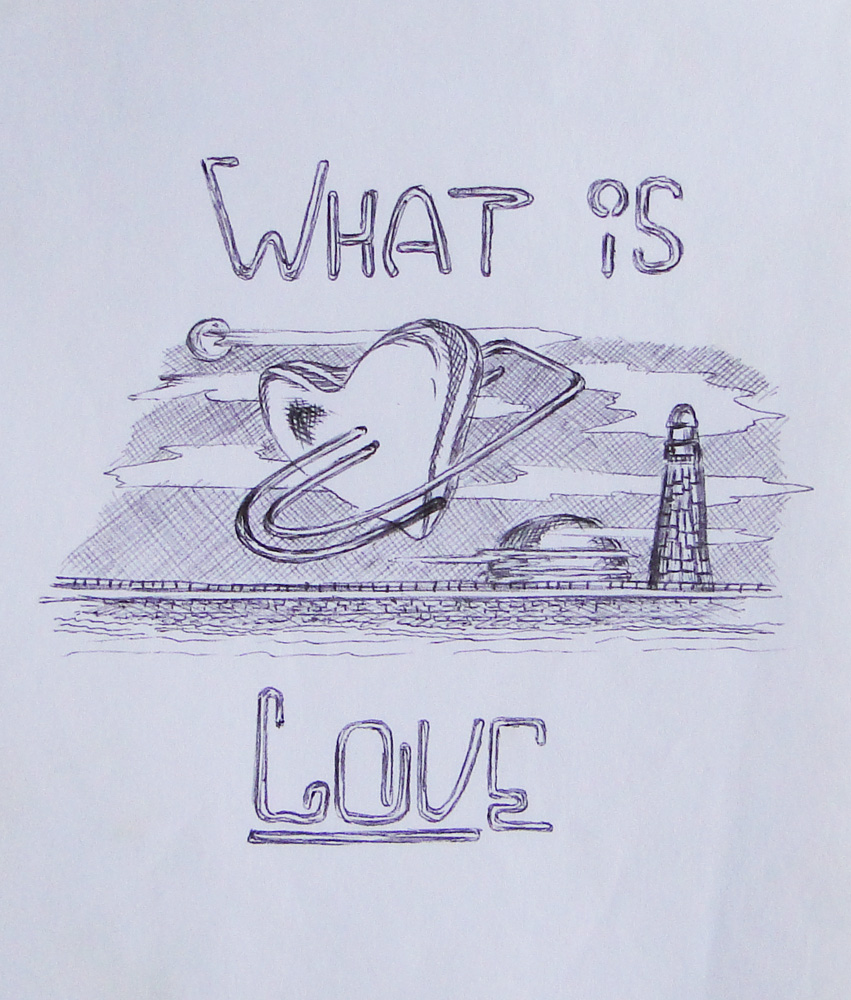 WHAT iS
LOVE